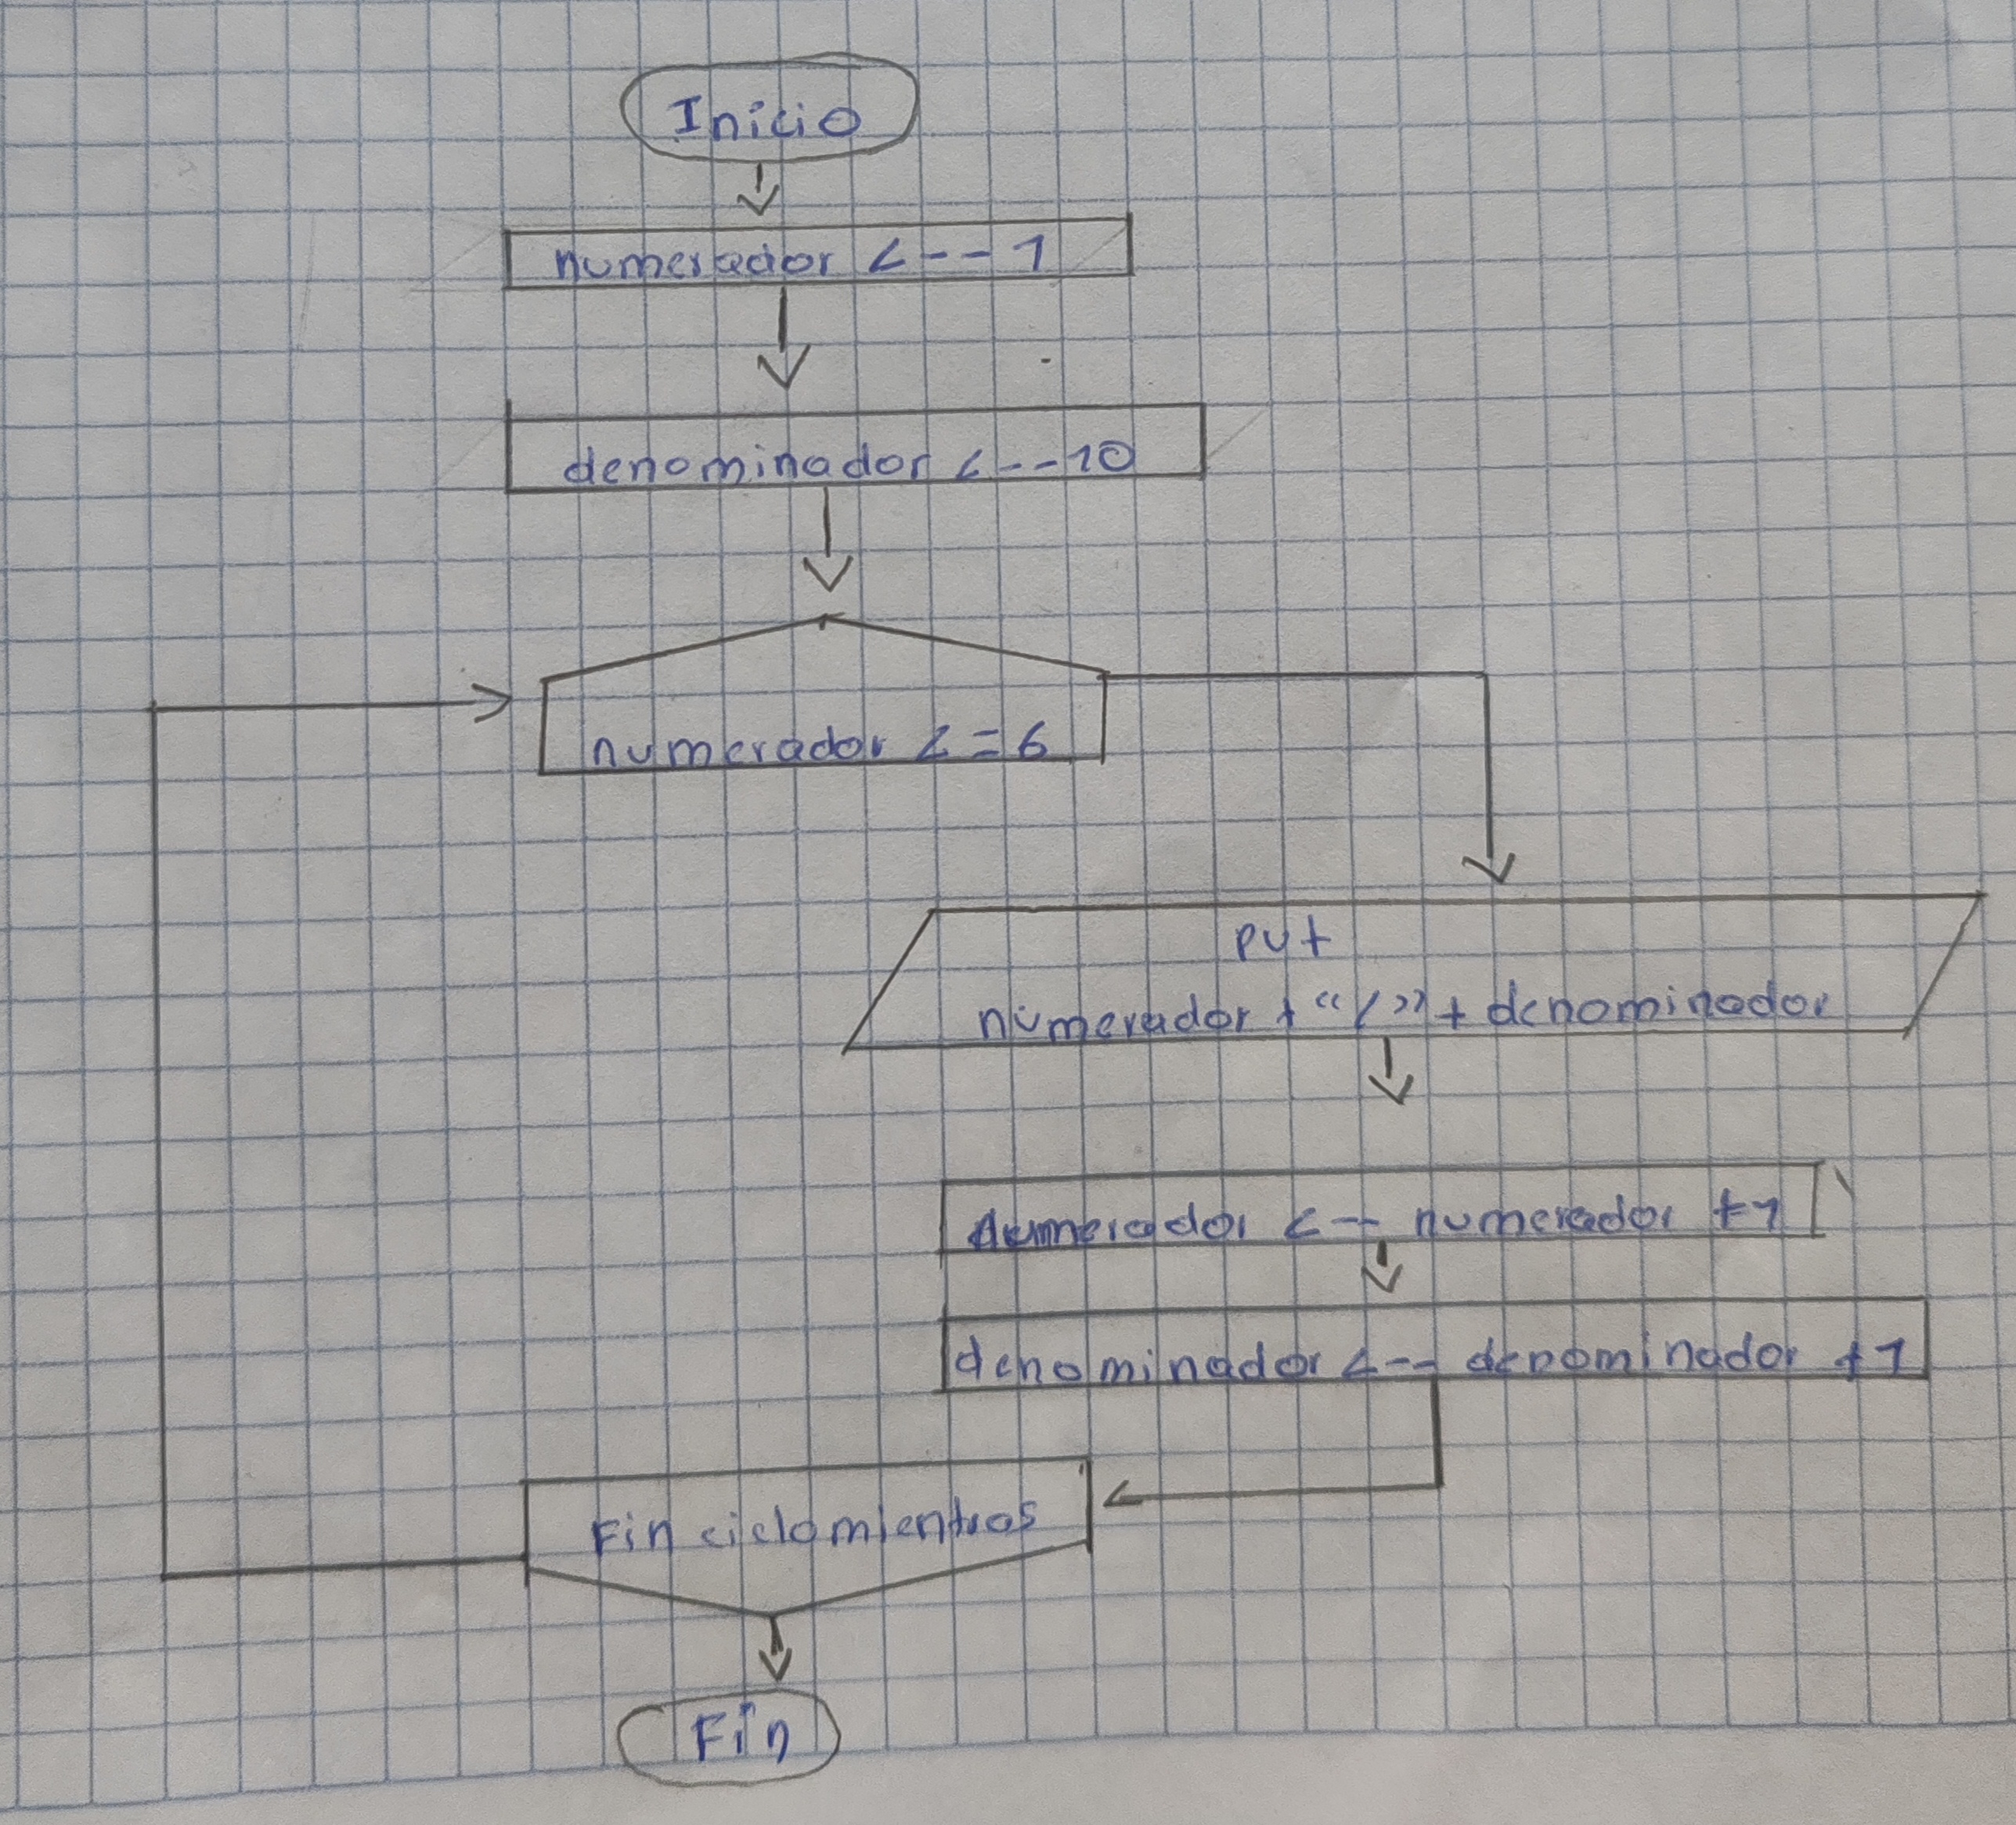 Inicio
numerador <-- 1
denominador <--10
numerador <=6
put
numerador + "/" + denominador
numerador <-- numerador +1
denominador <-- denominador +1
Fin ciclo mientras
Fin